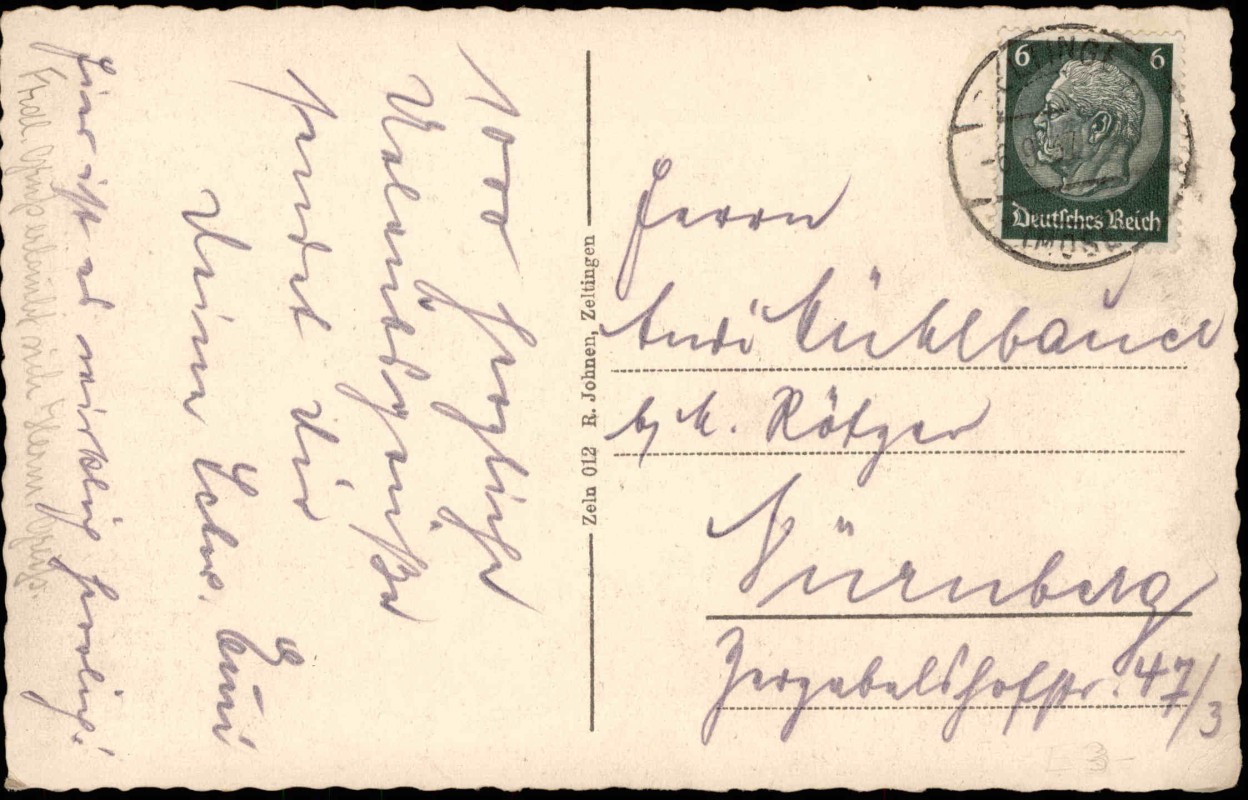 1000 herzliche
Urlaubsgrüße
sendet Dir
Deine Schw.
Hier ist es wirklich herrlich!
Zeln 012 R. Johnen, Zeltingen
6 6
Deutsches Reich
Herrn
Andi Mühlbauer
b/ M. Rötzer
Nürnberg
Zerzabelshofstr. 47/3